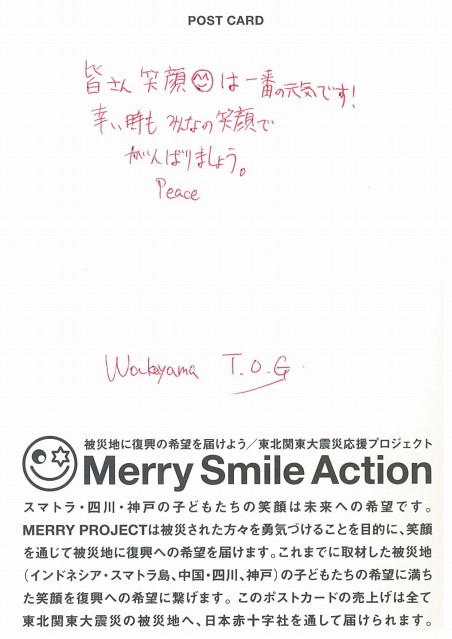 POST CARD
皆さん 笑顔は一番の元気です!
辛い時も みんなの笑顔で
がんばりましょう。
Peace
Wakayama T.O.G
被災地に復興の希望を届けよう/東北関東大震災応援プロジェクト
Merry Smile Action
スマトラ・四川・神戸の子どもたちの笑顔は未来への希望です。
MERRY PROJECTは被災された方々を勇気づけることを目的に、笑顔
を通じて被災地に復興への希望を届けます。これまでに取材した被災地
(インドネシア・スマトラ島、中国・四川、神戸)の子どもたちの希望に満ち
た笑顔を復興への希望に繋げます。このポストカードの売上げは全て
東北関東大震災の被災地へ、日本赤十字社を通して届けられます。